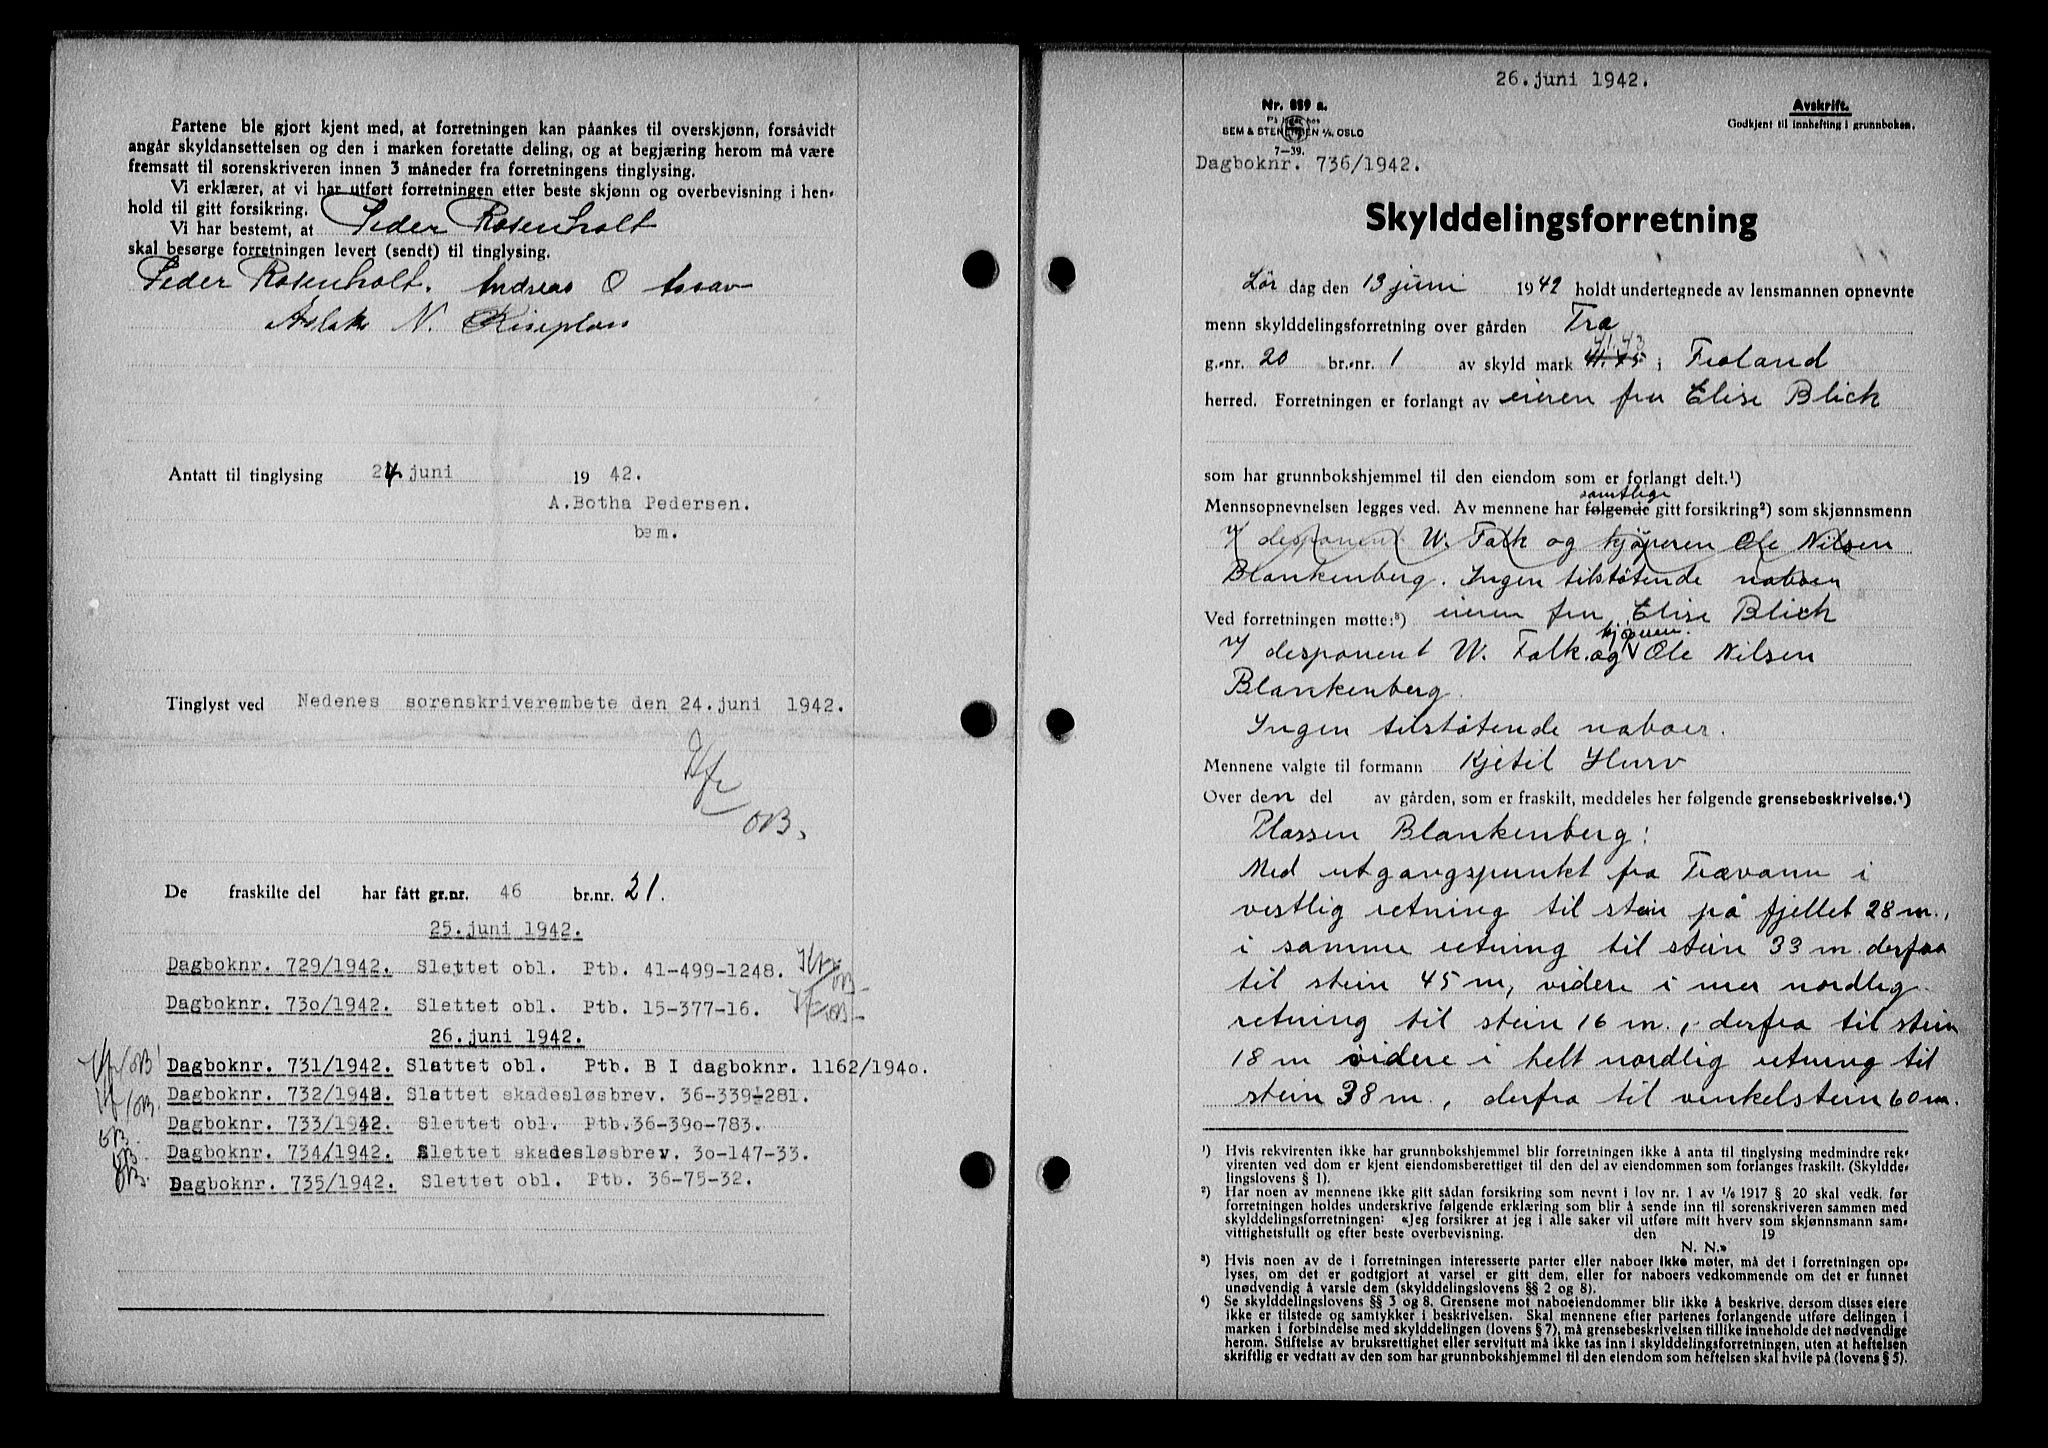 Partene ble gjort kjent med, at forretningen kan påankes til overskjønn, forsåvidt
angår skyldansettelsen og den i marken foretatte deling, og at begjæring herom må være
fremsatt til sorenskriveren innen 3 måneder fra forretningens tinglysing.
Vi erklærer, at vi har utført forretningen etter beste skjønn og overbevisning i hen-
hold til gitt forsikring.
Vi har bestemt, at Peder Rosenholt
skal besørge forretningen levert (sendt) til tinglysing.
Peder Rosenholt. Andreas O Assav
Aslak N. Riseplass
Antatt til tinglysing 24 juni 1942.
A.Botha Pedersen.
bem.
Tinglyst ved Nedenes sorenskriverembete den 24.juni 1942.
OB.
De fraskilte del har fått gr.nr. 46 br.nr. 21.
25.juni 1942.
Dagboknr. 729/1942. Slettet obl. Ptb. 41-499-1248.
OB
Dagboknr. 730/1942. Slettet obl. Ptb. 15-377-16.
OB
26.juni 1942.
OB Dagboknr. 731/1942. Slattet obl. Ptb. B I dagboknr. 1162/1940.
OB. Dagboknr. 732/1942. Slattet skadesløsbrev. 36-339-281.
OB. Dagboknr. 733/1942. Slettet obl. Ptb.36-390-783.
OB. Dagboknr. 734/1942. Slettet skadesløsbrev. 30-147-33.
OB. Dagboknr. 735/1942. Slettet obl. Ptb. 36-75-32.
26.juni 1942.
Nr. 889 a.
Avskrift.
På lager hos
Godkjent til innhefting i grunnboken.
SEM & STENERSEN A/S, OSLO
7—39.
Dagboknr. 736/1942.
Skylddelingsforretning
Lør dag den 13 juni 1942 holdt undertegnede av lensmannen opnevnte
menn skylddelingsforretning over gården Træ
41.43
g.-nr. 20 br.-nr. 1 av skyld mark i Froland
herred. Forretningen er forlangt av eieren fru Elise Blick
som har grunnbokshjemmel til den eiendom som er forlangt delt.¹)
samtlige
Mennsopnevnelsen legges ved. Av mennene har følgende gitt forsikring²) som skjønnsmenn
v/ desponent W. Falk og kjøperen Ole Nilsen
Blankenberg. Ingen tilstøtende naboer
Ved forretningen møtte:³) eieren fru Elise Blick
kjøperen
v/ desponent W. Falk. og Ole Nilsen
Blankenberg.
Ingen tilstøtende naboer.
Mennene valgte til formann Kjetil Hurv
Over den del av gården, som er fraskilt, meddeles her følgende grensebeskrivelse.⁴)
Plassen Blankenberg:
Med utgangspunkt fra Trævann i
vestlig retning til stein på fjellet 28 m.,
i samme retning til stein 33 m. derfra
til stein 45 m, videre i mer nordlig
retning til stein 16 m., derfra til stein
18 m videre i helt nordlig retning til
stein 38 m., derfra til vinkelstein 60 m.
¹) Hvis rekvirenten ikke har grunnbokshjemmel blir forretningen ikke å anta til tinglysing medmindre rek-
virenten ved dom er kjent eiendomsberettiget til den del av eiendommen som forlanges fraskilt. (Skyldde-
lingslovens § 1).
²) Har noen av mennene ikke gitt sådan forsikring som nevnt i lov nr. 1 av 1/6 1917 § 20 skal vedk. før
forretningen holdes underskrive følgende erklæring som blir å sende inn til sorenskriveren sammen med
skylddelingsforretningen: «Jeg forsikrer at jeg i alle saker vil utføre mitt hverv som skjønnsmann sam-
vittighetsfullt og efter beste overbevisning. den 19
N. N.»
³) Hvis noen av de i forretningen interesserte parter eller naboer ikke møter, må det i forretningen op-
lyses, om det er godtgjort at varsel er gitt dem, eller for naboers vedkommende om det er funnet
unødvendig å varsle dem (skylddelingslovens §§ 2 og 8).
⁴) Se skylddelingslovens §§ 3 og 8. Grensene mot naboeiendommer blir ikke å beskrive, dersom disses eiere
ikke er tilstede og samtykker i beskrivelsen. Skal mennene efter partenes forlangende utføre delingen i
marken i forbindelse med skylddelingen (lovens § 7), må grensebeskrivelsen tillike inneholde det nødvendige
herom. Stiftelse av bruksrettighet eller servitutt må ikke tas inn i skylddelingsforretningen, uten at heftelsen
skriftlig er vedtatt av den som har grunnbokshjemmel til den eiendom som heftelsen skal hvile på (lovens § 5).